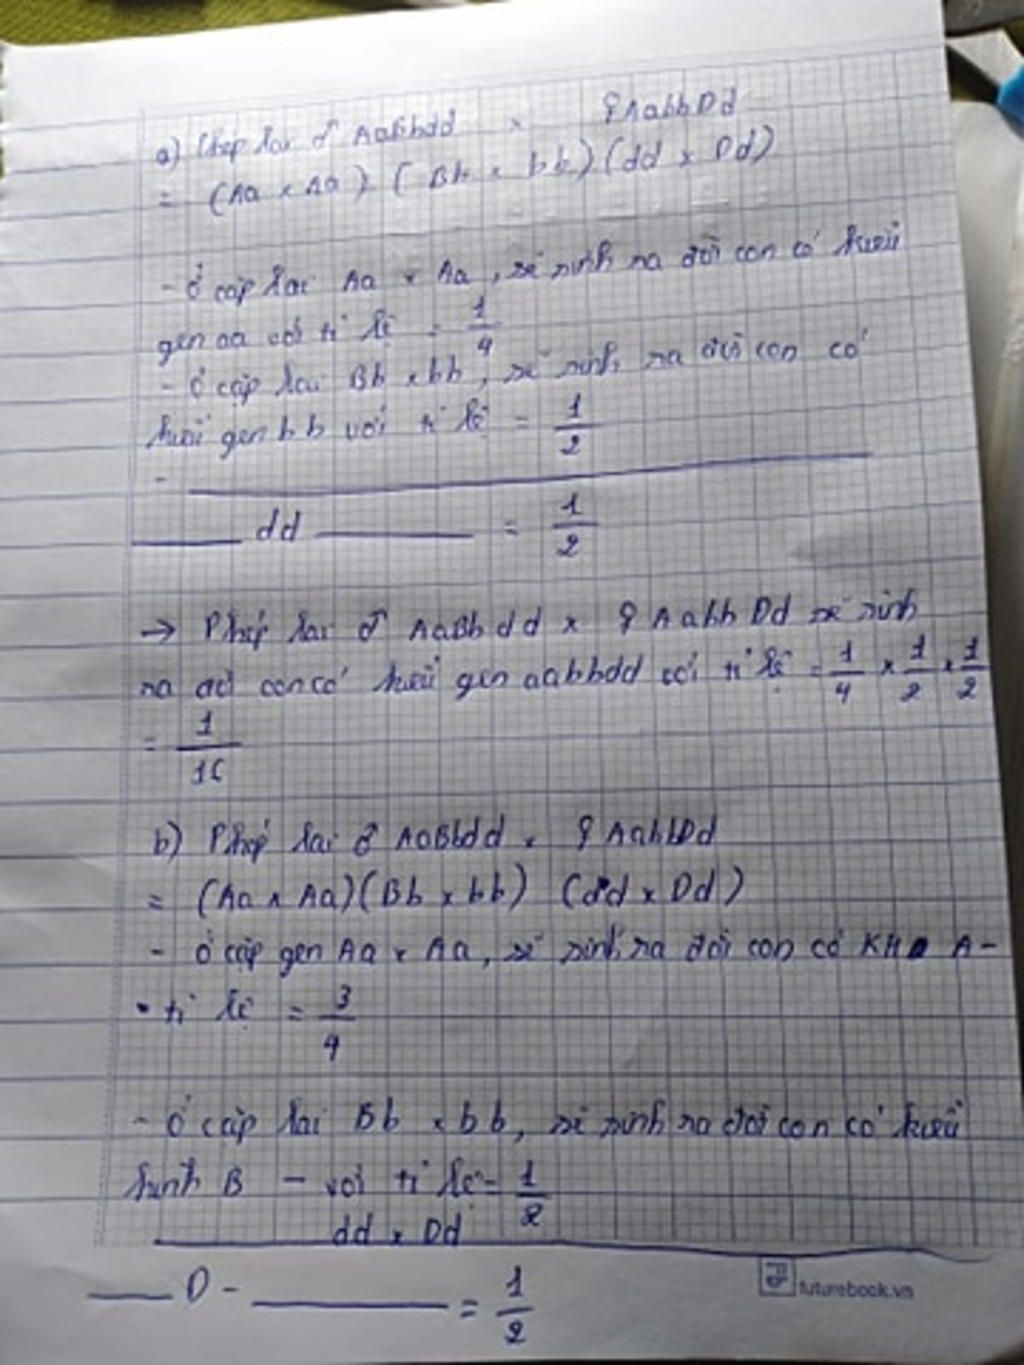 a) Phép lai ♂ AaBbdd × ♀ AabbDd
= (Aa × Aa) (Bb × bb) (dd × Dd)
- Ở cặp lai Aa × Aa, sẽ sinh ra đời con có kiểu
gen aa với tỉ lệ = 1/4
- Ở cặp lai Bb × bb, sẽ sinh ra đời con có
kiểu gen bb với tỉ lệ = 1/2
-
dd = 1/2
→ Phép lai ♂ AaBbdd × ♀ AabbDd sẽ sinh
ra đời con có kiểu gen aabbdd với tỉ lệ = 1/4 × 1/2 × 1/2
= 1/16
b) Phép lai ♂ AaBbdd × ♀ AabbDd
= (Aa × Aa) (Bb × bb) (dd × Dd)
- Ở cặp gen Aa × Aa, sẽ sinh ra đời con có KH A-
tỉ lệ = 3/4
- Ở cặp lai Bb × bb, sẽ sinh ra đời con có kiểu
hình B - với tỉ lệ = 1/2
dd × Dd
D - = 1/2
futurebook.vn